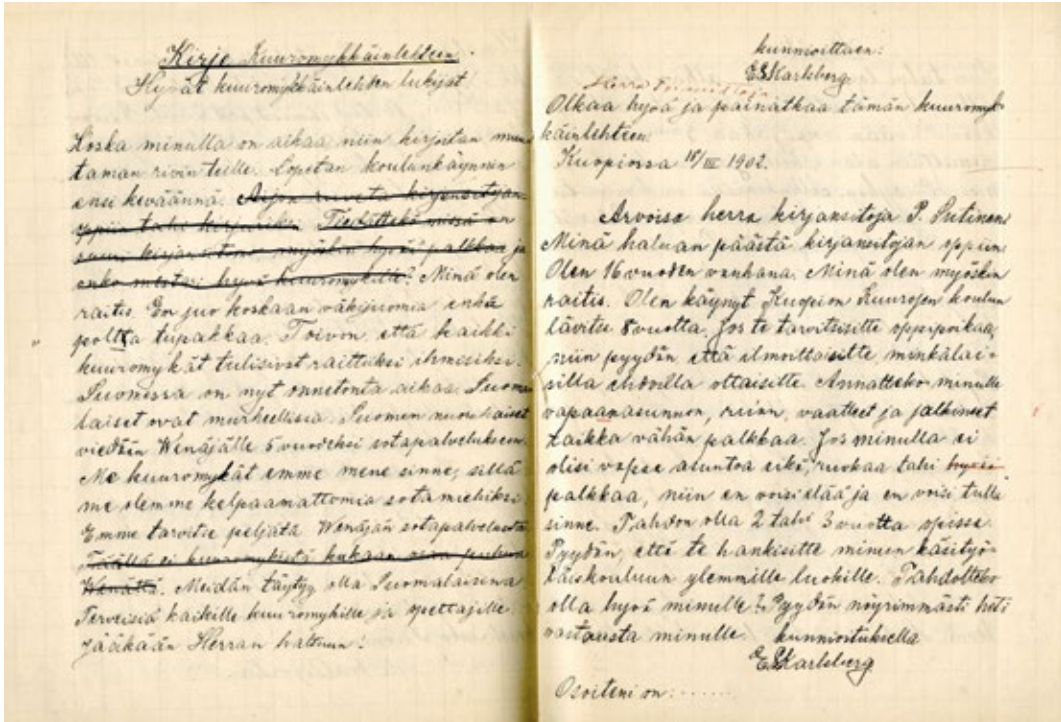 Kirje Kuuromykkäinlehteen.
Hyvät kuuromykkäinlehden lukijat!
Koska minulla on aikaa niin kirjoitan muu-
taman rivin teille. Lopetan koulunkäynnin
ensi keväännä. Aijon ruveta kirjansitojan
oppiin tahi kirjuriksi. Tiedättekö missä on
suuri kirjansitomo myöskin hyvä palkka ja
onko mestari hyvä kuuromykille? Minä olen
raitis. En juo koskaan väkijuomia enkä
poltta tupakkaa. Toivon että kaikki
kuuromykät tulisivat raittiiksi ihmisiksi.
Suomessa on nyt onnetonta aikaa. Suoma-
laiset ovat murheellisia. Suomen nuorukaiset
viedään Wenäjälle 5 vuodeksi sotapalvelukseen.
Me kuuromykät emme mene sinne, sillä
me olemme kelpaamattomia sotamiehiksi.
Emme tarvitse peljätä Wenäjän sotapalvelusta.
Täällä ei kuuromykistä kukaan osaa puhua
Wenättä. Meidän täytyy olla Suomalaisina
Terveisiä kaikille kuuromykille ja opettajille.
Jääkään Herran haltuun!
kunnioittaen:
ESKarlsberg
Herra Toimittaja
Olkaa hyvä ja painatkaa tämän kuuromyk-
käinlehteen.
Kuopiossa 18/III 1902.
Arvoisa herra kirjansitoja P. Sutinen
Minä haluan päästä kirjansitojan oppiin.
Olen 16 vuoden vanhana. Minä olen myöskin
raitis. Olen käynyt Kuopion Kuurojen koulun
lävitse 8 vuotta. Jos te tarvitsisitte oppipoikaa,
niin pyydän että ilmoittaisitte, minkälai-
silla ehdoilla ottaisitte. Annatteko minulle
vapaan asunnon, ruuan, vaatteet ja jalkineet
taikka vähän palkkaa. Jos minulla ei
olisi vapaa asuntoa eikä, ruokaa tahi
palkkaa, niin en voisi elää ja en voisi tulla
sinne. Tahdon olla 2 tahi 3 vuotta opissa.
Pyydän, että te hankisitte minun käsityö-
läiskouluun ylemmille luokille. Tahdotteko
olla hyvä minulle? Pyydän nöyrimmästi heti
vastausta minulle. kunnioituksella
ESKarlsberg
Osoiteni on: ......